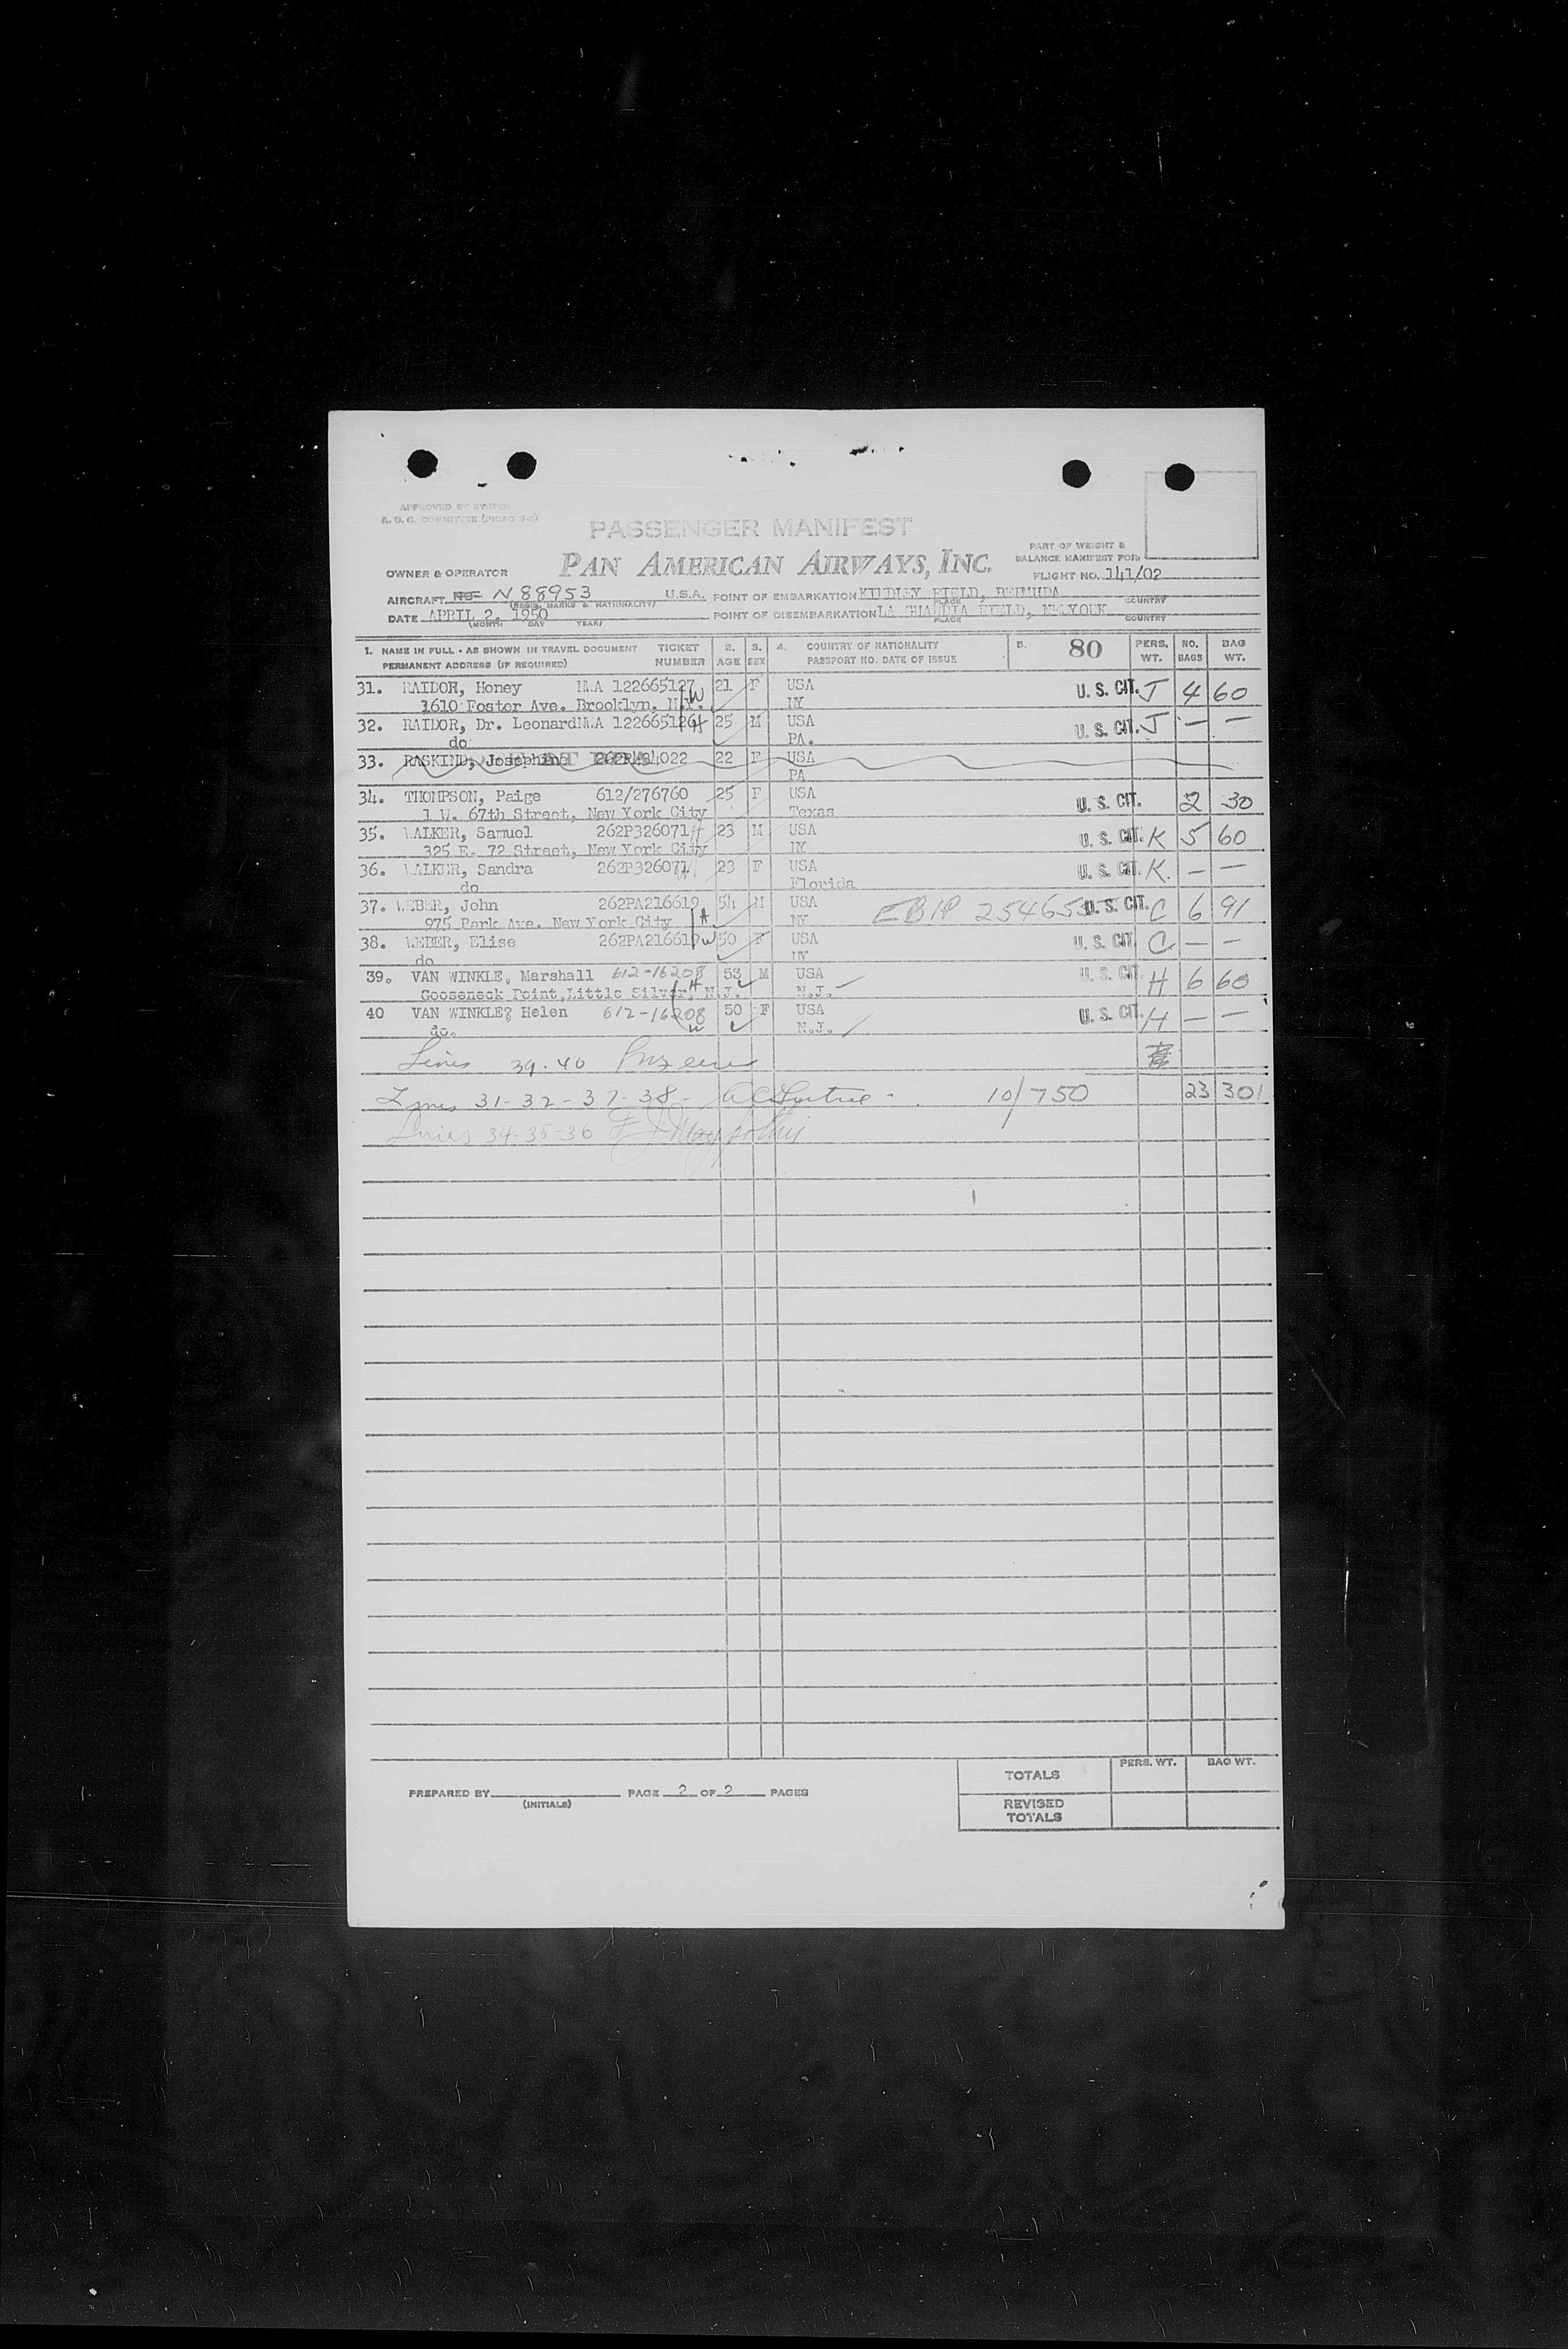 APPROVED BY SYSTEM
A. D. C. COMMITTEE (PICAO 3-2)
PASSENGER MANIFEST
PAN AMERICAN AIRWAYS, INC.
PART OF WEIGHT &
BALANCE MANIFEST FOR:
OWNER & OPERATOR
FLIGHT NO. 141/02
AIRCRAFT N 88953 U.S.A. POINT OF EMBARKATION KINDLEY FIELD, BERMUDA
(REGIS. MARKS & NATIONALITY) PLACE COUNTRY
DATE APRIL 2, 1950 POINT OF DISEMBARKATION LA GUARDIA FIELD, NEWYORK
(MONTH DAY YEAR) PLACE COUNTRY
1. NAME IN FULL - AS SHOWN IN TRAVEL DOCUMENT TICKET 2. 3. 4. COUNTRY OF NATIONALITY 5. 80 PERS. NO. BAG
PERMANENT ADDRESS (IF REQUIRED) NUMBER AGE SEX PASSPORT NO. DATE OF ISSUE WT. BAGS WT.
31. RAIDOR, Honey 122665127 W 21 F USA U. S. CIT. J 4 60
1610 Foster Ave. Brooklyn, N.Y. NY
32. RAIDOR, Dr. Leonard 122665126 H 25 M USA U. S. CIT. J — —
do PA.
33. RASKIND, Josephine 22 F USA
PA
34. THOMPSON, Paige 612/276760 25 F USA U. S. CIT. 2 30
1 W. 67th Street, New York City Texas
35. WALKER, Samuel 262P326071 H 23 M USA U. S. CIT. K 5 60
325 E. 72 Street, New York City NY
36. WALKER, Sandra 262P326071 W 23 F USA U. S. CIT. K. — —
do Florida
37. WEBER, John 262PA216619 H 54 M USA U. S. CIT. C 6 91
975 Park Ave. New York City NY
38. WEBER, Elise 262PA216619 W 50 F USA U. S. CIT. C — —
do NY
39. VAN WINKLE, Marshall 612-16208 H 53 M USA U. S. CIT. H 6 60
Gooseneck Point, Little Silver, N.J. N.J.
40 VAN WINKLE? Helen 612-16208 W 50 F USA U. S. CIT. H — —
do. N.J.
Lines 39-40
Lines 31-32-37-38- 10/750 23 301
Lines 34-35-36
TOTALS PERS. WT. BAG WT.
PREPARED BY PAGE 2 OF 2 PAGES
(INITIALS)
REVISED
TOTALS